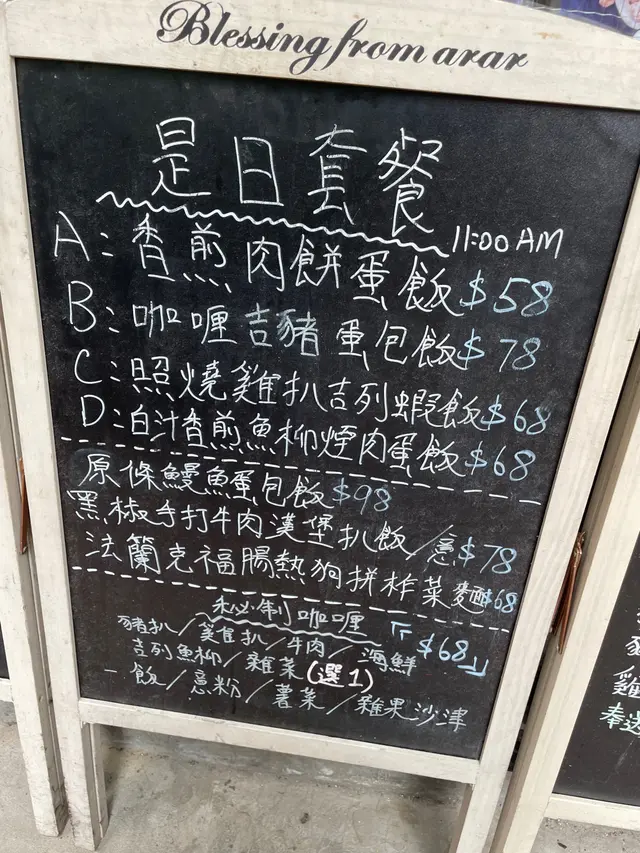 Blessing from arar
是日套餐
11:00 AM
A：香煎肉餅蛋飯$58
B：咖喱吉豬蛋包飯$78
C：照燒雞扒吉列蝦飯$68
D：白汁香煎魚柳煙肉蛋飯$68
原條鰻魚蛋包飯$98
黑椒手打牛肉漢堡扒飯/意$78
法蘭克福腸熱狗拼炸菜麵$68
秘制咖喱
豬扒/雞扒/牛肉/海鮮『$68』
吉列魚柳/雜菜(選1)
－飯/意粉/薯菜/雜果沙津
雞
奉送